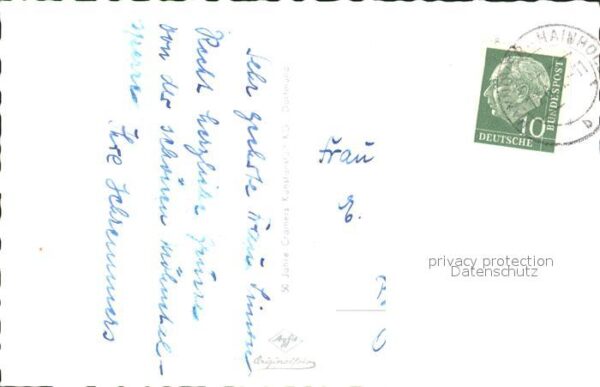 Sehr geehrte Frau
Recht herzliche Grüsse
von der schönen Möhnetal-
sperre Ihre Schremmers
50 Jahre Cramers Kunstanstalt KG Dortmund
Frau
E.
HAINHOLZ
10
BUNDESPOST
DEUTSCHE
privacy protection
Datenschutz
Agfa
Originalfoto